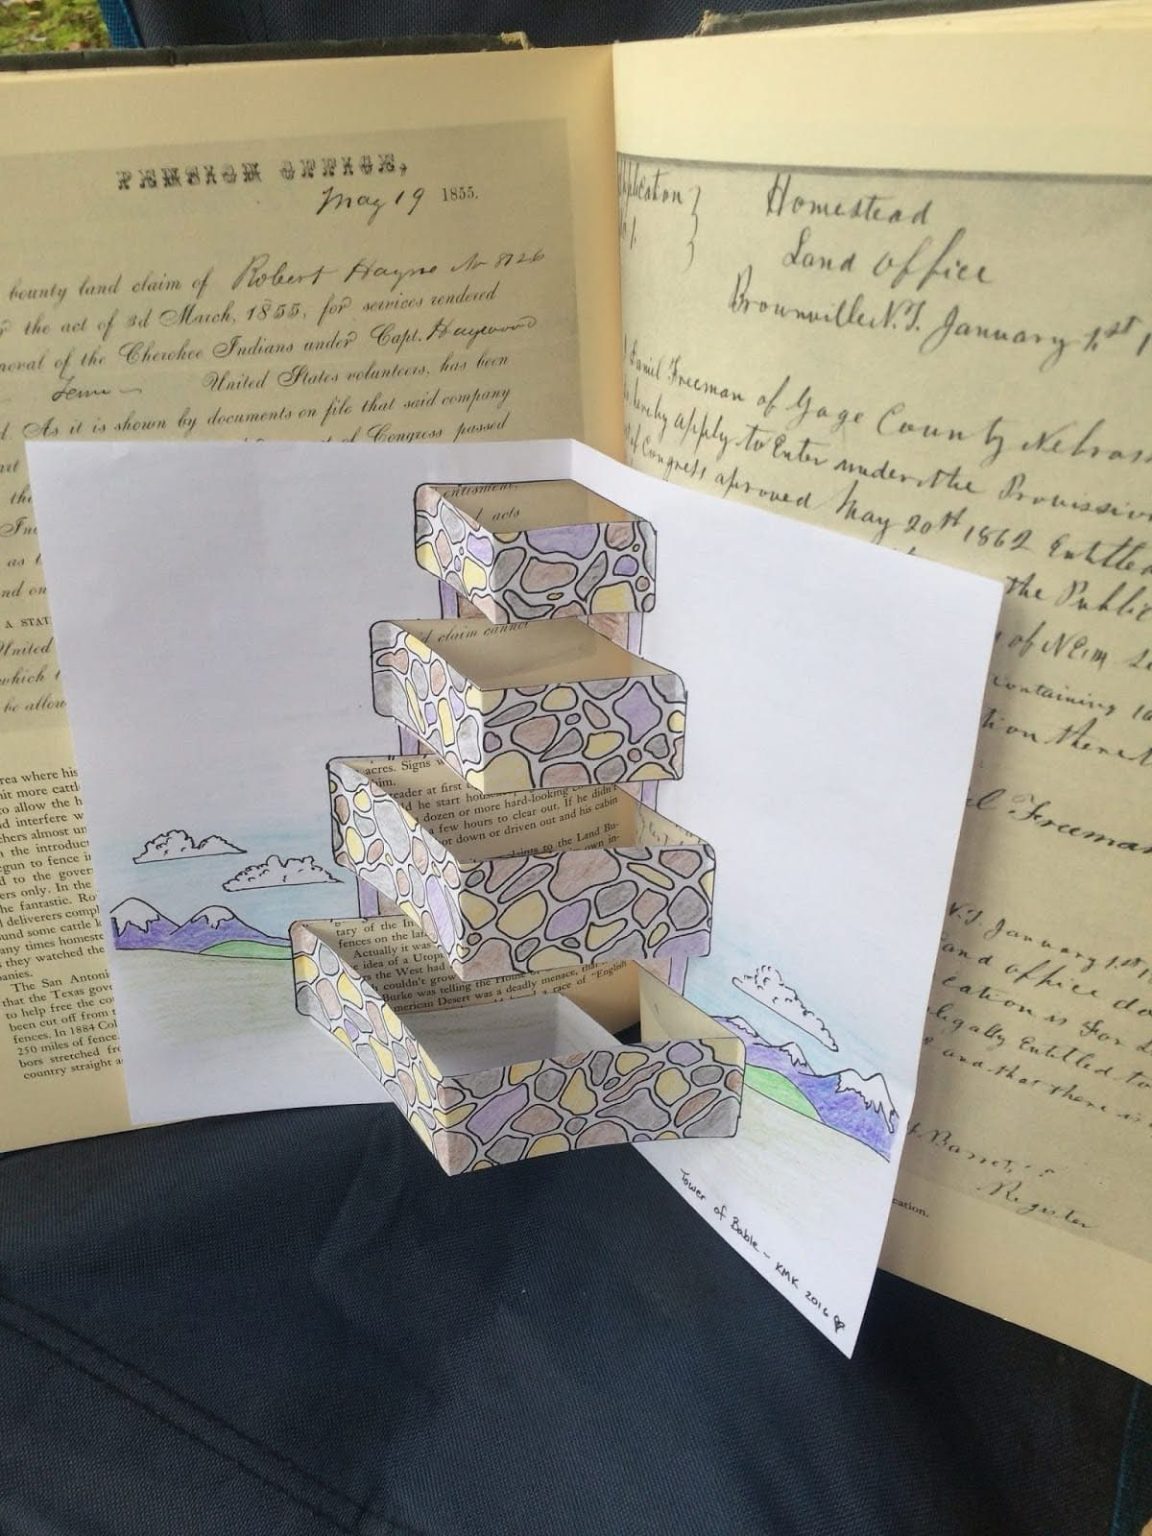 PENSION OFFICE,
May 19 1855.
bounty land claim of Robert Hayne No 8726
the act of 3d March, 1855, for services rendered
of the Cherokee Indians under Capt. Haywood
Tenn — United States volunteers, has been
As it is shown by documents on file that said company
of Congress passed
the
as
and on
A STAT
United
which
be allow
entisment,
acts
claim cannot
acres. Signs
him.
eader at first
d he start
dozen or more hard-looking
a few hours to clear out. If he didn't
ot down or driven out and his cabin
to the Land Bu-
own in-
tary of the In
fences on the
Actually it was
e idea of a Utop
rs the West had
couldn't grow
Burke was telling the House of
merican Desert was a deadly menace, that
race of "English
rea where his
nit more cattl
to allow the h
d interfere w
chers almost un
n the introduc
gun to fence i
d to the gover
ers only. In the
he fantastic. Ro
d deliverers compl
ound some cattle k
any times homeste
they watched the
panies.
The San Antoni
that the Texas gove
to help free the co
been cut off from
fences. In 1884 Col
250 miles of fence
bors stretched fr
country straight a
Application
Homestead
Land Office
Brownville N.T. January 1st 1
Daniel Freeman of Gage County Nebras
hereby apply to Enter under the Provission
of Congress aproved May 20th 1862 Entitled
the Public
of NE1/4
containing 16
tion there
Freeman
N.T. January 1st
Land office do
cation is For
legally Entitled to
and that there is
Barret,
Register
cation.
Tower of Bable - KMK 2016